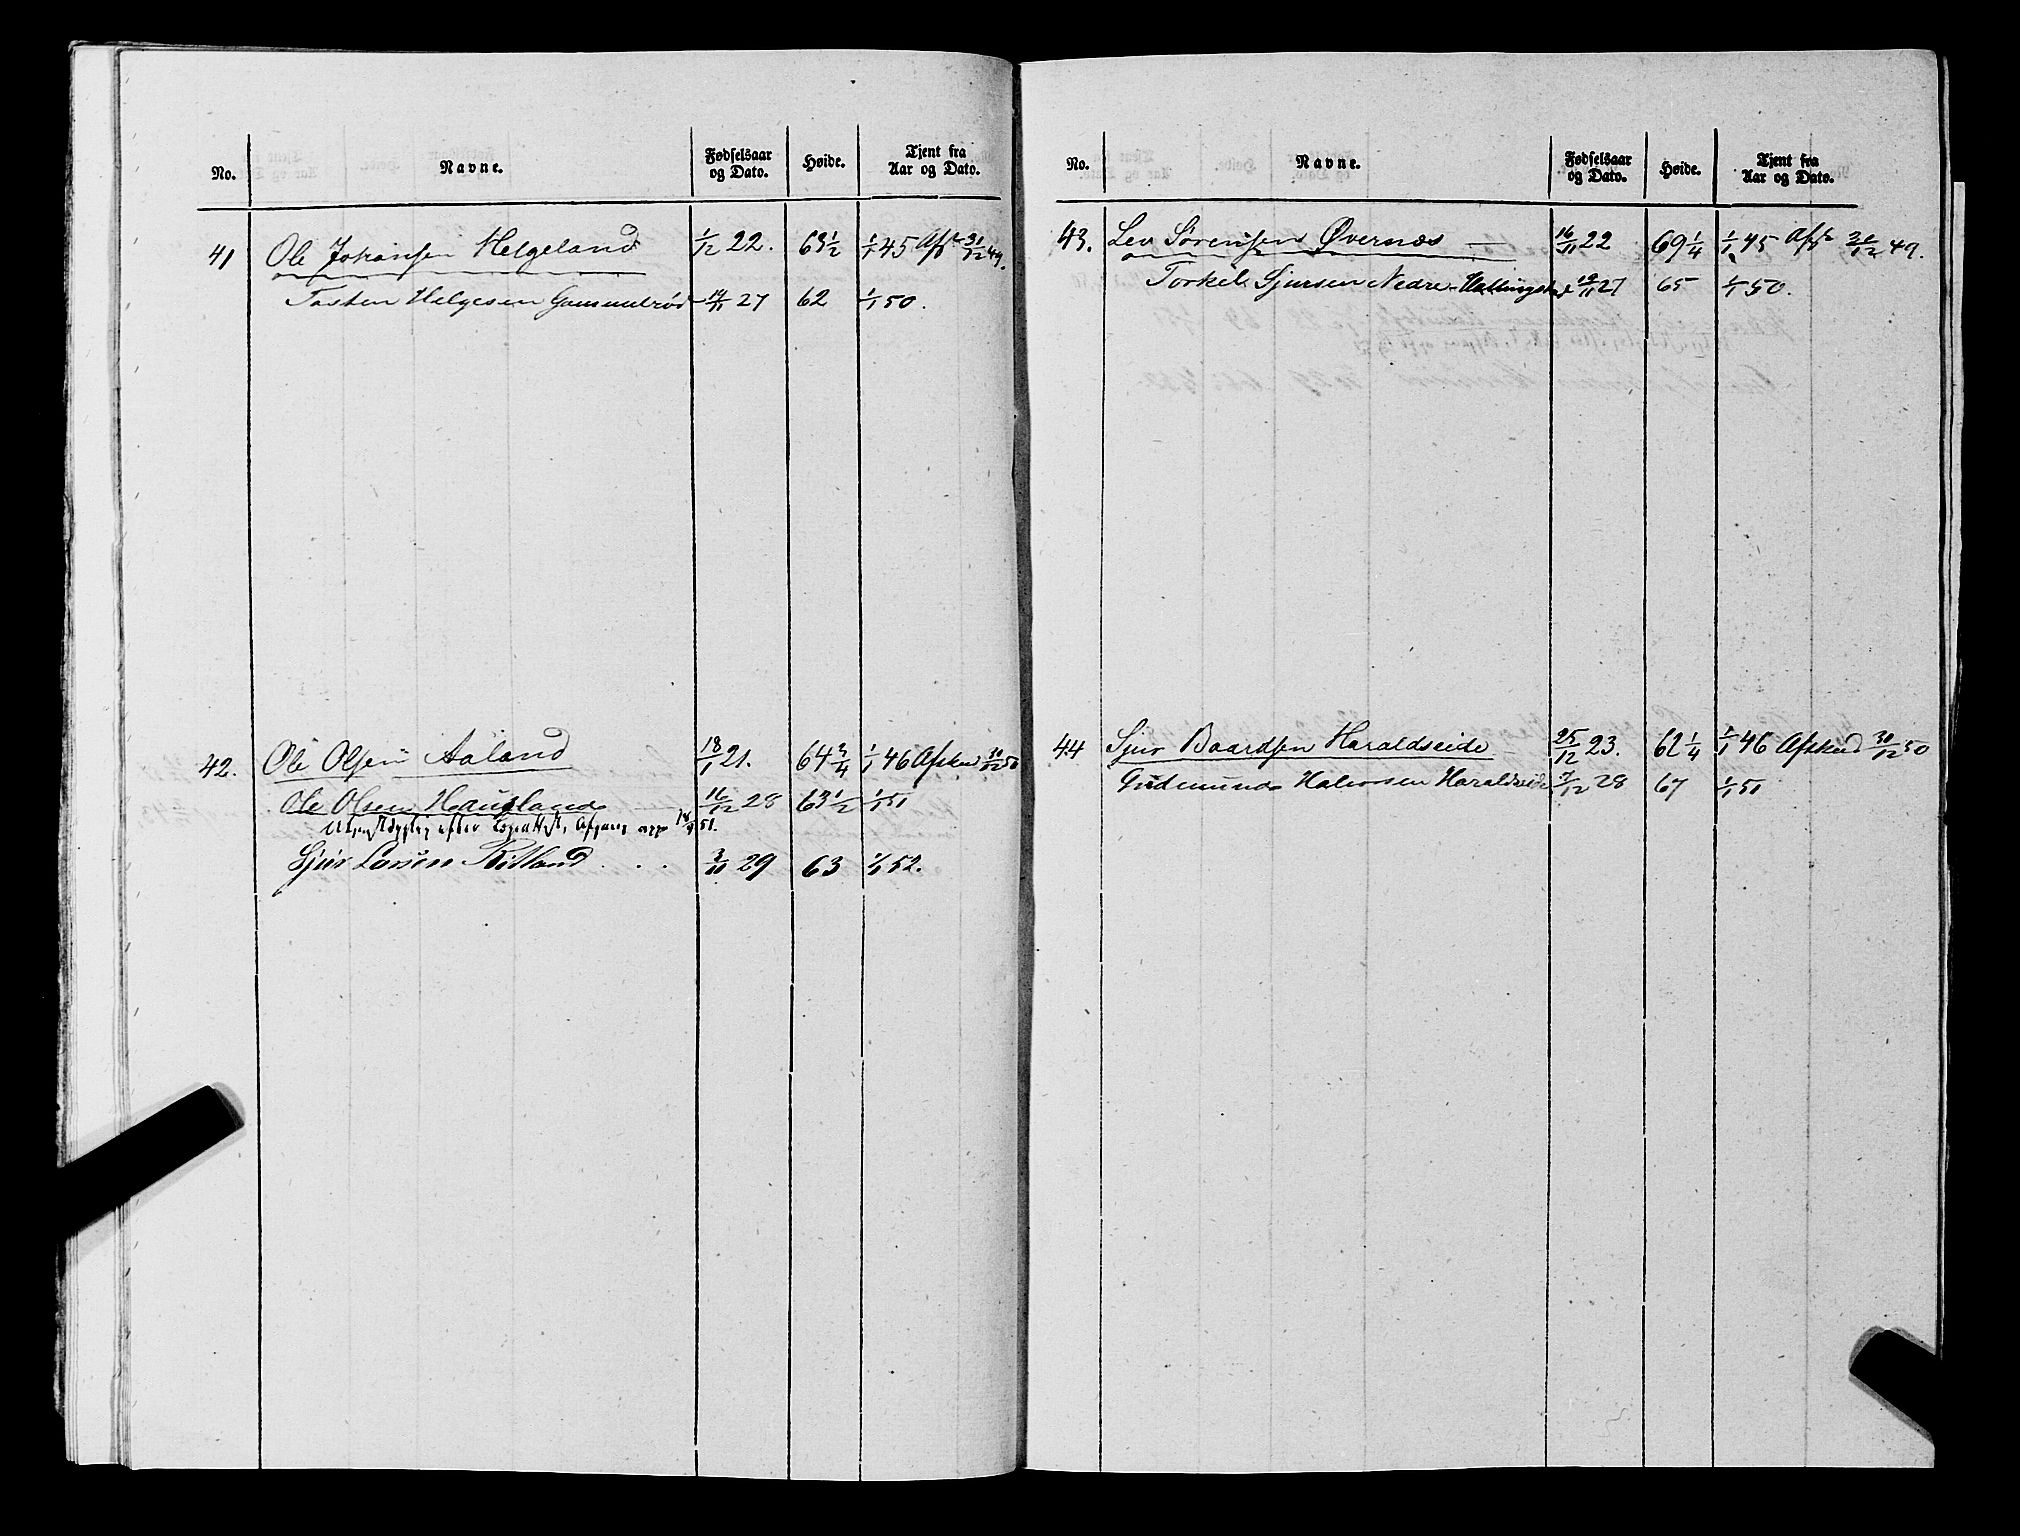 No. Navne. Fødselsaar og Dato. Høide. Tjent fra Aar og Dato.
41 Ole Johansen Helgeland 1/12 22. 63 1/2 1/1 45 Afsk 31/12 49.
Tosten Helgesen Gammelrød 14/11 27 62 1/1 50.
42. Ole Olsen Aaland 18/1 21. 64 3/4 1/1 46 Afsked 30/12 50
Ole Olsen Hausland 16/12 28 63 1/2 1/1 51
efter Afgang 51.
Sjur Larsen 3/11 29 63 1/1 52.
No. Navne. Fødselsaar og Dato. Høide. Tjent fra Aar og Dato.
43. Lev Sørensen Øvernæs 16/11 22 69 1/4 1/1 45 Afsk 31/12 49.
Torkel Sjursen Nedre-Hallingstad 19/11 27 65 1/1 50.
44 Sjur Baardsen Haraldseide 25/12 23. 62 1/4 1/1 46 Afsked 30/12 50
Gudmund Halvorsen Haraldseide 7/12 28 67 1/1 51